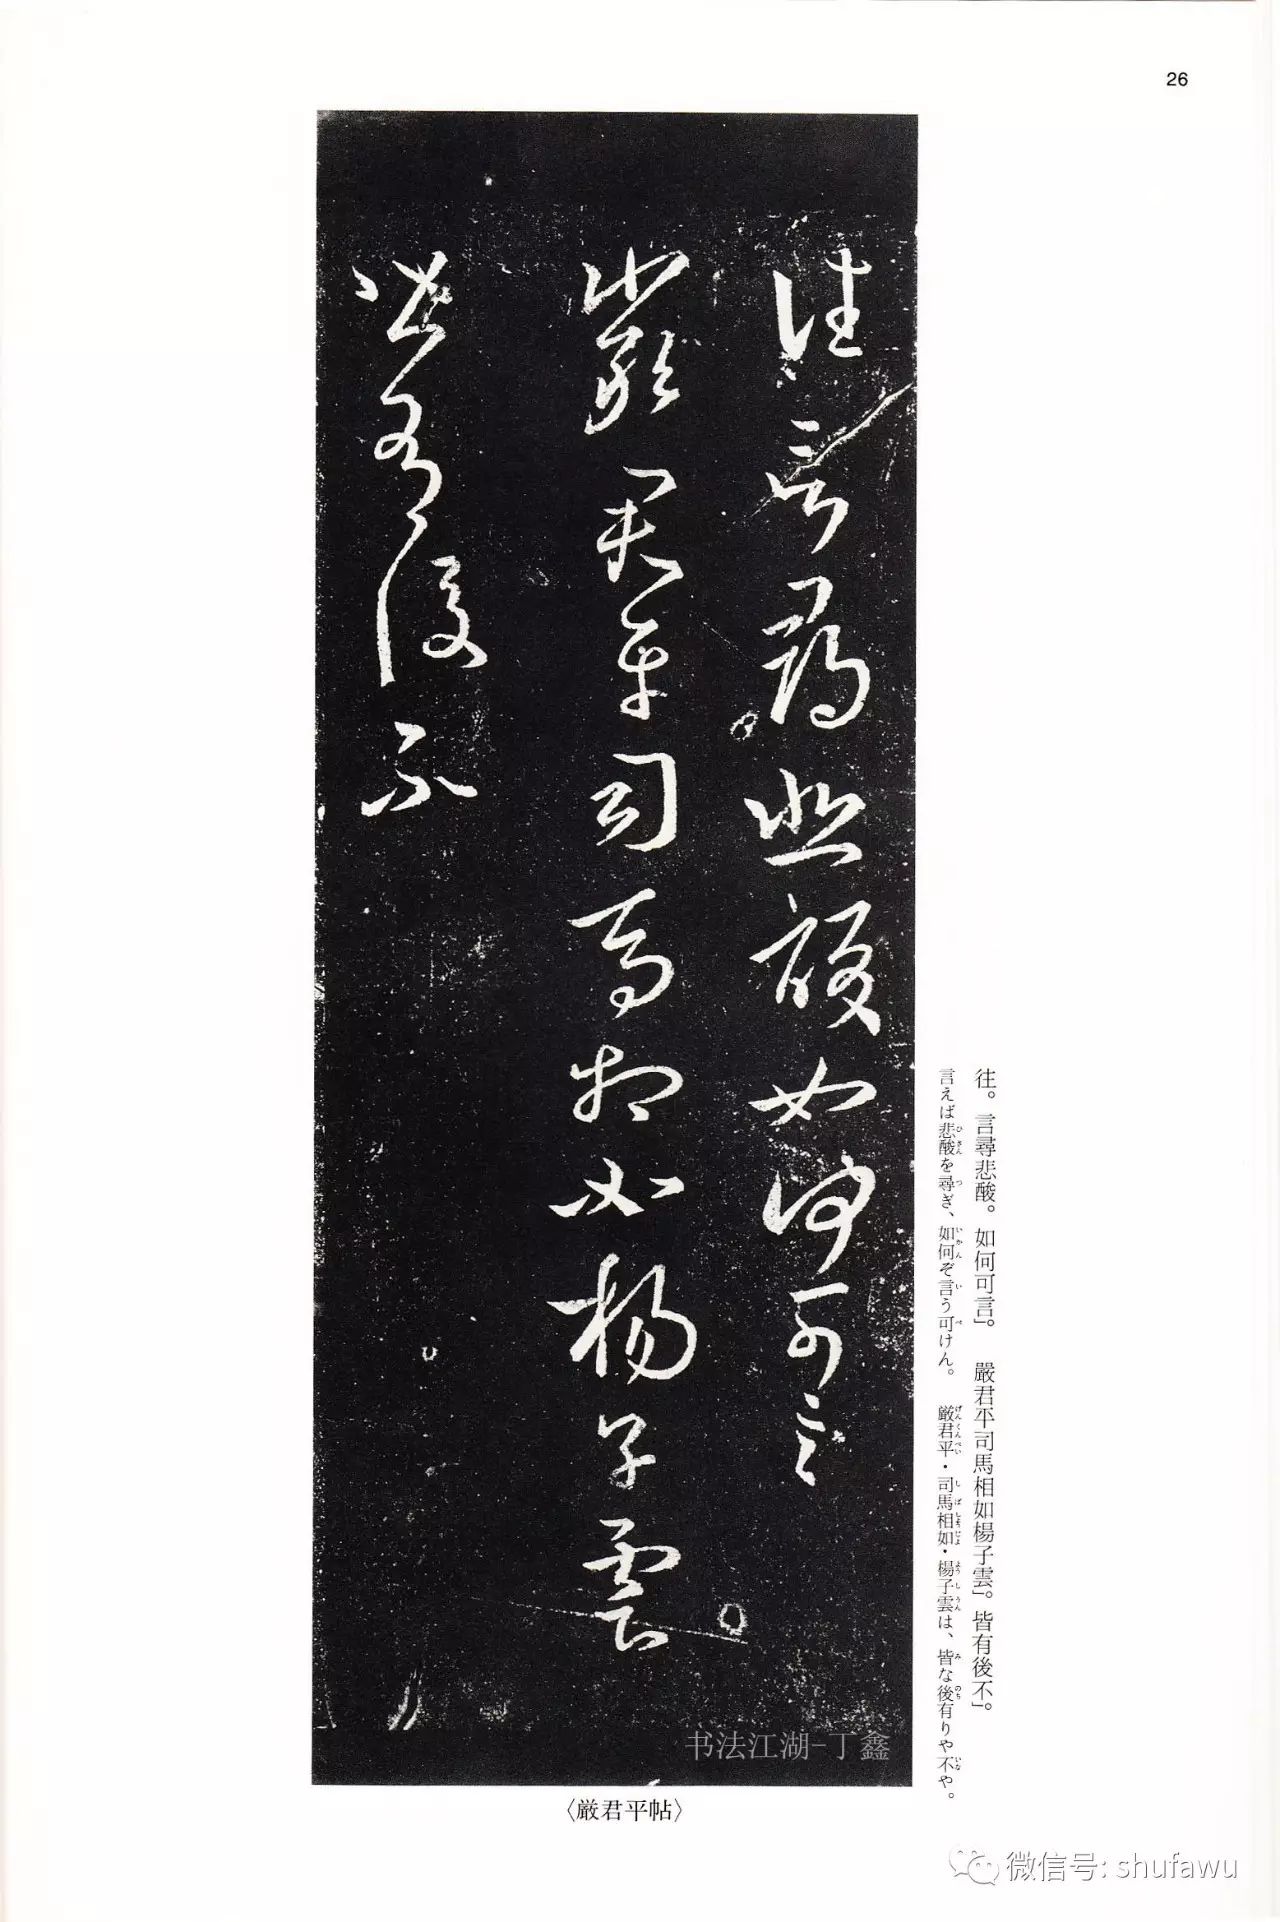 26
往言尋悲酸如何可言
嚴君平司馬相如楊子雲
皆有後不
往。言尋悲酸。如何可言」。 嚴君平司馬相如楊子雲」。皆有後不」。
言えば悲酸を尋ぎ、如何ぞ言う可けん。 厳君平・司馬相如・楊子雲は、皆な後有りや不や。
〈厳君平帖〉
书法江湖-丁鑫
微信号: shufawu